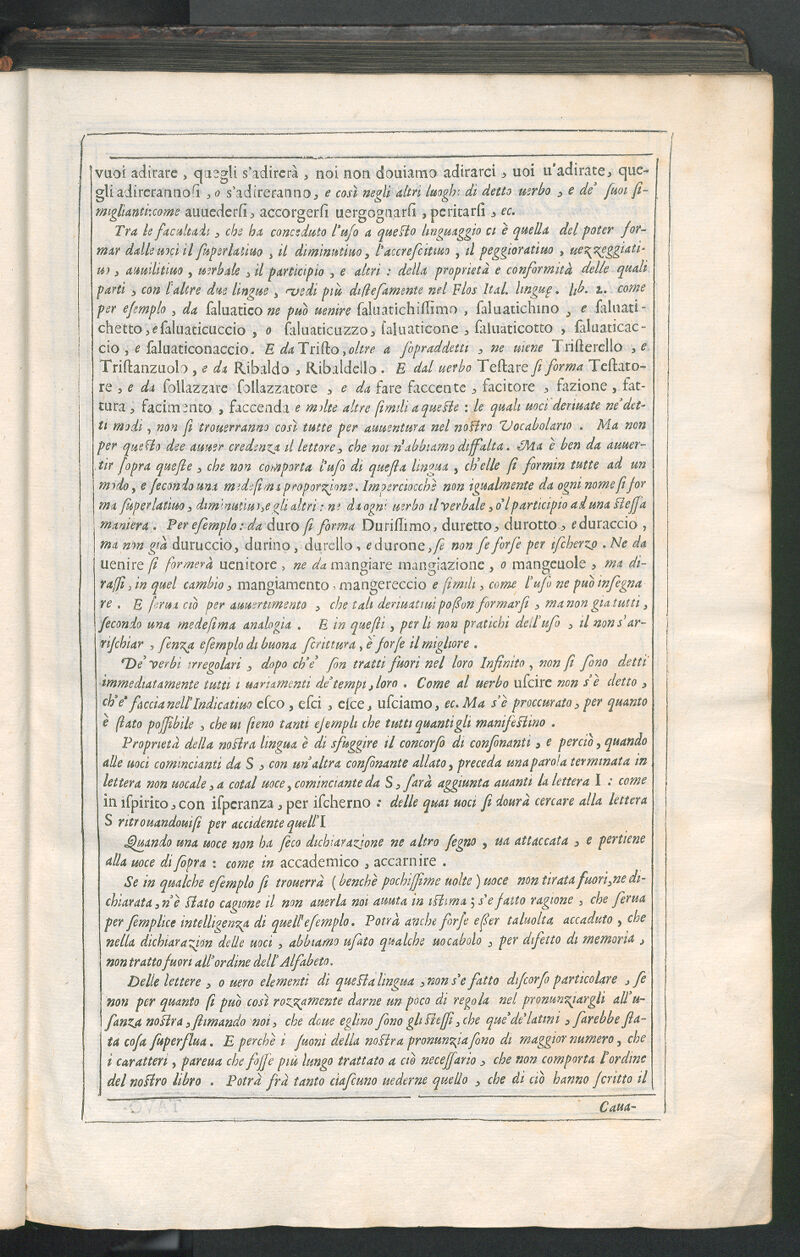 vuoi adirare , quegli s'adirerà , noi non douiamo adirarci , uoi u'adirate, que-
gli adirerannoſi , o s'adireranno, e così negli altri luoghi di detto uerbo , e de' ſuoi ſi-
miglianti:come auuederſi, accorgerſi uergognarſi , peritarſi , ec.
Tra le facultadi , che ha conceduto l'uſo a queſto linguaggio ci è quella del poter for-
mar dalle uoci il ſuperlatiuo , il diminutiuo, l'accreſcitiuo , il peggioratiuo , uezzeggiati-
uo , auuilitiuo , uerbale , il participio , e altri : della proprietà e conformità delle quali
parti , con l'altre due lingue , vedi più diſteſamente nel Flos Ital. linguę. lib. 2. come
per eſemplo , da ſaluatico ne può uenire ſaluatichiſſimo , ſaluatichino , e ſaluati-
chetto, e ſaluaticuccio , o ſaluaticuzzo, ſaluaticone , ſaluaticotto , ſaluaticac-
cio , e ſaluaticonaccio. E da Triſto, oltre a ſopraddetti , ne uiene Triſterello , e
Triſtanzuolo , e da Ribaldo , Ribaldello . E dal uerbo Teſtare ſi forma Teſtato-
re , e da ſollazzare ſollazzatore , e da fare faccente , facitore , fazione , fat-
tura , facimento , faccenda e molte altre ſimili a queſte : le quali uoci deriuate ne'det-
ti modi , non ſi troueranno così tutte per auuentura nel noſtro Vocabolario . Ma non
per queſto dee auuer credenza il lettore, che noi n'abbiamo diffalta. Ma è ben da auuer-
tir ſopra queſte , che non comporta l'uſo di queſta lingua , ch'elle ſi formin tutte ad un
modo , e ſecondo una medeſima proporzione. Imperciocchè non igualmente da ogni nome ſi for
ma ſuperlatiuo , diminutiuo, e gli altri : ne da ogni uerbo il verbale , o'l participio ad una ſteſſa
maniera . Per eſemplo : da duro ſi forma Duriſſimo, duretto, durotto , e duraccio ,
ma non già duruccio, durino, durello , e durone, ſe non ſe forſe per iſcherzo . Ne da
uenire ſi formerà uenitore , ne da mangiare mangiazione , o mangeuole , ma di-
raſſi , in quel cambio , mangiamento, mangereccio e ſimili , come l'uſo ne può inſegna
re . E ſerua ciò per auuertimento , che tali deriuatiui poſſon formarſi , ma non gia tutti ,
ſecondo una medeſima analogia . E in queſti , per li non pratichi dell'uſo , il non s'ar-
riſchiar , ſenza eſemplo di buona ſcrittura , è forſe il migliore .
De' verbi irregolari , dopo ch'e' ſon tratti fuori nel loro Infinito , non ſi ſono detti
immediatamente tutti i uariamenti de'tempi, loro . Come al uerbo uſcire non s'è detto ,
ch'e' faccia nell'Indicatiuo eſco , eſci , eſce, uſciamo, ec. Ma s'è proccurato, per quanto
è ſtato poſſibile , che ui ſieno tanti eſempli che tutti quanti gli manifeſtino .
Proprietà della noſtra lingua è di sfuggire il concorſo di conſonanti , e perciò, quando
alle uoci comincianti da S , con un'altra conſonante allato, preceda una parola terminata in
lettera non uocale, a cotal uoce, cominciante da S, ſarà aggiunta auanti la lettera I : come
in iſpirito, con iſperanza , per iſcherno : delle quai uoci ſi dourà cercare alla lettera
S ritrouandouiſi per accidente quell'I
Quando una uoce non ha ſeco dichiarazione ne altro ſegno , ua attaccata , e pertiene
alla uoce di ſopra : come in accademico , accarnire .
Se in qualche eſemplo ſi trouerrà ( benchè pochiſſime uolte ) uoce non tirata fuori, ne di-
chiarata, n'è ſtato cagione il non auerla noi auuta in iſtima ; s'e fatto ragione , che ſerua
per ſemplice intelligenza di quell'eſemplo. Potrà anche forſe eſſer taluolta accaduto , che
nella dichiarazion delle uoci , abbiamo uſato qualche uocabolo , per difetto di memoria ,
non tratto fuori all'ordine dell'Alfabeto.
Delle lettere , o uero elementi di queſta lingua , non s'e fatto diſcorſo particolare , ſe
non per quanto ſi può così rozzamente darne un poco di regola nel pronunziargli all'u-
ſanza noſtra, ſtimando noi, che doue eglino ſono gli ſteſſi, che que'de'latini , ſarebbe ſta-
ta coſa ſuperflua. E perchè i ſuoni della noſtra pronunzia ſono di maggior numero , che
i caratteri , pareua che foſſe più lungo trattato a ciò neceſſario , che non comporta l'ordine
del noſtro libro . Potrà frà tanto ciaſcuno uederne quello , che di ciò hanno ſcritto il
Caua-